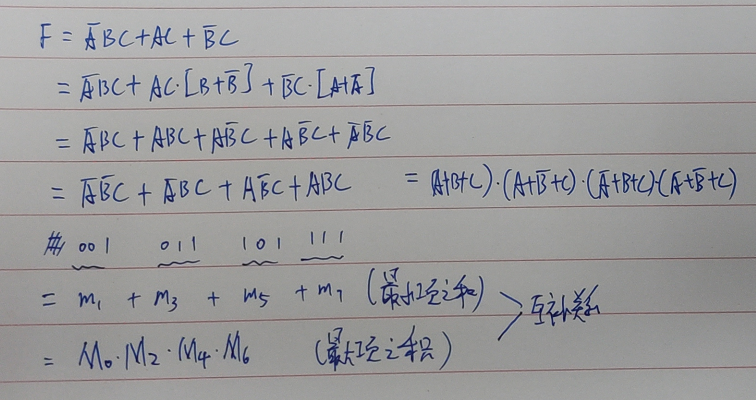 F = A̅BC + AC + B̅C
= A̅BC + AC·[B+B̅] + B̅C·[A+A̅]
= A̅BC + ABC + AB̅C + AB̅C + A̅B̅C
= A̅B̅C + A̅BC + AB̅C + ABC = (A+B+C)·(A+B̅+C)·(A̅+B+C)·(A̅+B̅+C)
001 011 101 111
= m₁ + m₃ + m₅ + m₇ (最小项之和)
互补关系
= M₀·M₂·M₄·M₆ (最大项之积)